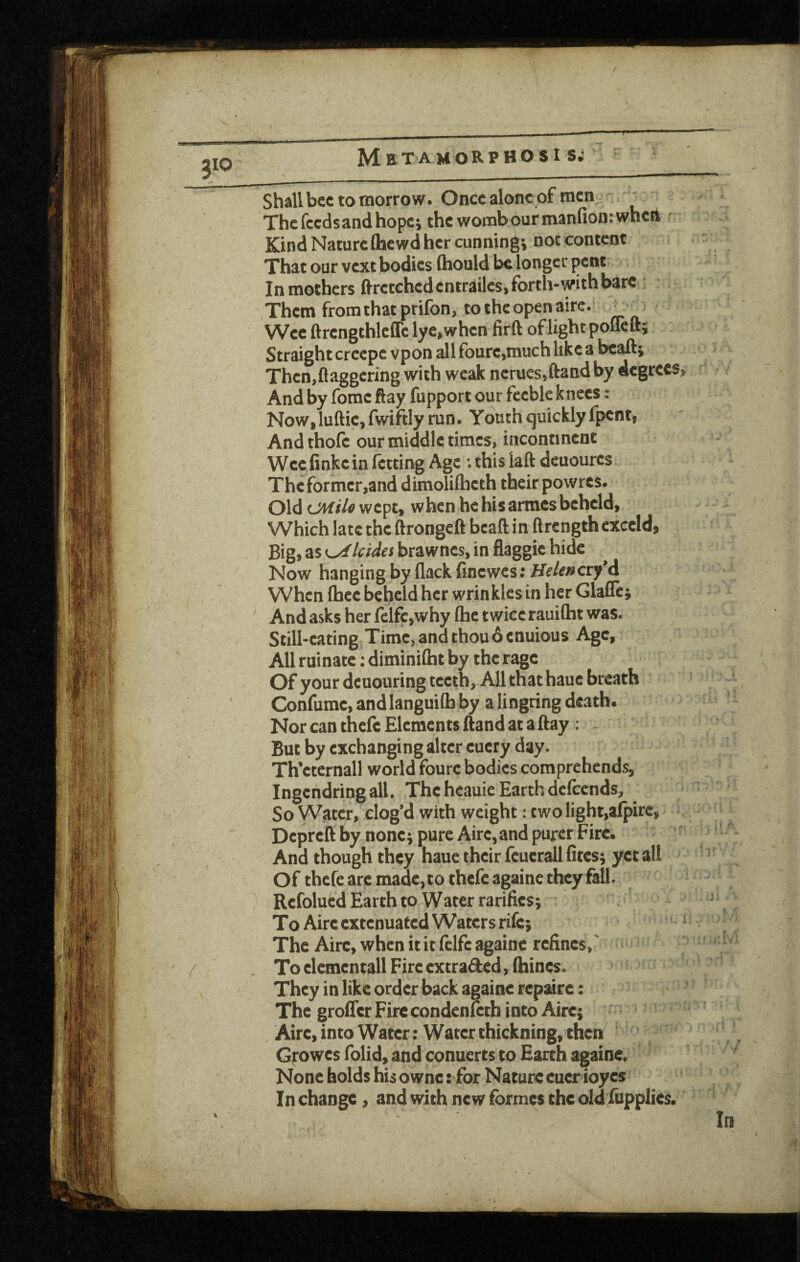 310
METAMORPHOSIS.
Shall bee to morrow. Once alone of men
The seeds and hope; the womb our mansion: when
Kind Nature shewd her cunning; not content
That our vext bodies should be longer pent
In mothers stretched entrailes, forth-with bare
Them from that prison, to the open aire.
Wee strengthlesse lye, when first of light possest;
Straight creepe vpon all foure, much like a beast;
Then, staggering with weak nerues, stand by degrees,
And by some stay support our feeble knees:
Now, lustie, swiftly run. Youth quickly spent,
And those our middle times, incontinent
Wee sinke in setting Age: this last deuoures
The former, and dimolisheth their powres.
Old Milo wept, when he his armes beheld,
Which late the strongest beast in strength exceld,
Big, as Alcides brawnes, in flaggie hide
Now hanging by slack sinewes: Helen cry'd
When shee beheld her wrinkles in her Glasse;
And asks her selfe, why she twice rauisht was.
Still-eating Time, and thou ô enuious Age,
All ruinate: diminisht by the rage
Of your deuouring teeth, All that haue breath
Consume, and languish by a lingring death.
Nor can these Elements stand at a stay:
But by exchanging alter euery day.
Th'eternall world foure bodies comprehends,
Ingendring all. The heauie Earth descends,
So Water, clog'd with weight: two light, aspire,
Deprest by none; pure Aire, and purer Fire.
And though they haue their seuerall sites; yet all
Of these are made, to these againe they fall.
Resolued Earth to Water rarifies;
To Aire extenuated Waters rise;
The Aire, when it it selfe againe refines,
To elementall Fire extracted, shines.
They in like order back againe repaire:
The grosser Fire condenseth into Aire;
Aire, into Water: Water thickning, then
Growes solid, and conuerts to Earth againe.
None holds his owne: for Nature euer ioyes
In change, and with new formes the old supplies.
In